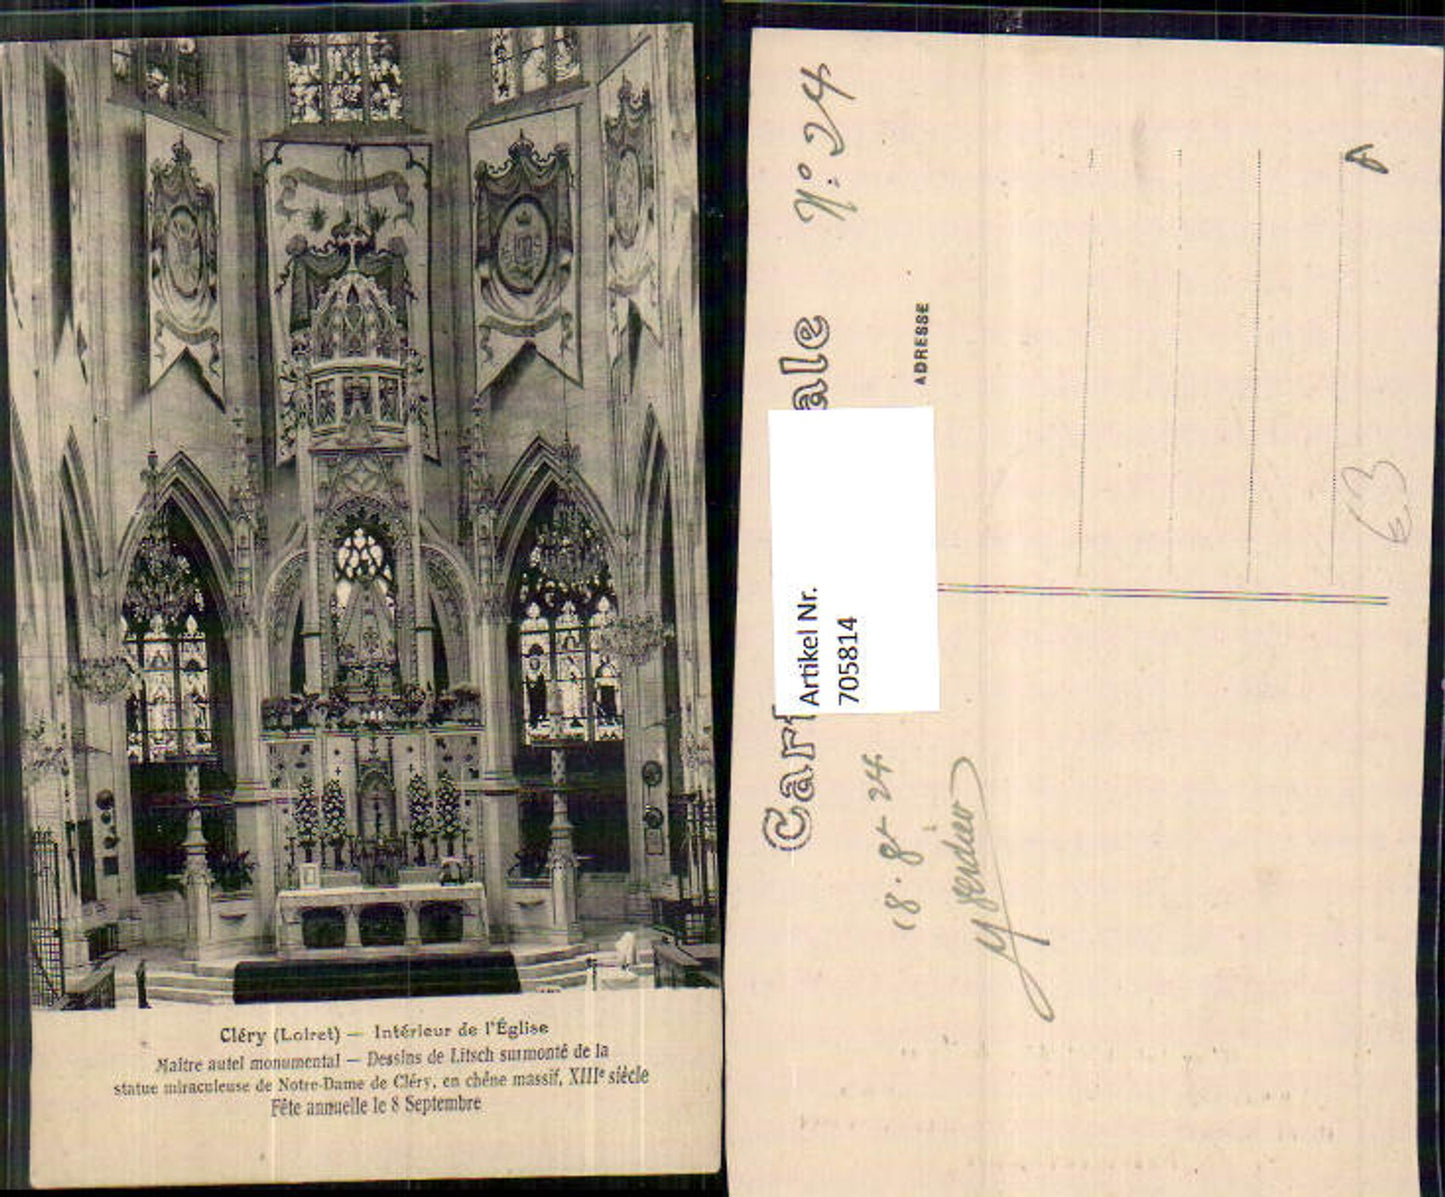 Cléry (Loiret) — Intérieur de l'Église
Maître autel monumental — Dessins de Litsch surmonté de la
statue miraculeuse de Notre-Dame de Cléry, en chêne massif, XIIIe siècle
Fête annuelle le 8 Septembre
N°: 24
Car ale
ADRESSE
Artikel Nr.
705814
63